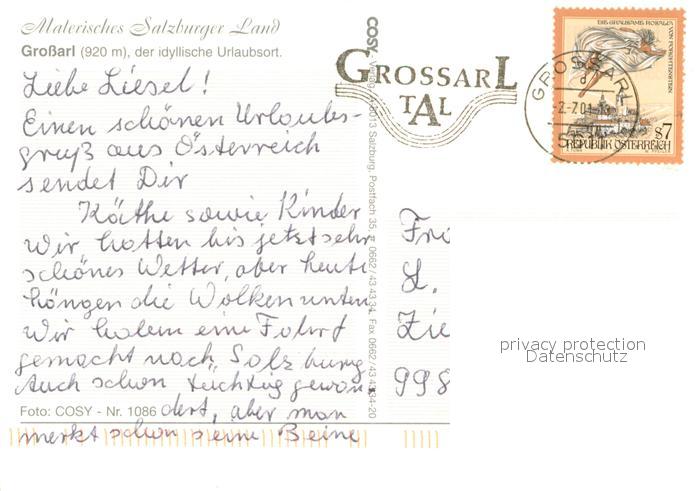 Malerisches Salzburger Land
Großarl (920 m), der idyllische Urlaubsort.
Liebe Liesel!
Einen schönen Urlaubs-
gruß aus Österreich
sendet Dir
Käthe sowie Kinder
Wir hatten bis jetzt sehr
schönes Wetter, aber heute
hängen die Wolken unten
Wir haben eine Fahrt
gemacht nach Salzburg
Auch schon tüchtig gewan
dert, aber man
merkt schon seine Beine
Foto: COSY - Nr. 1086
COSY
Salzburg, Postfach 35, 0662/43 43 34, Fax 0662/43 43 34-20
GROSSARL
TAL
GROSSARL
2.-7.01
DIE GRAUSAME ROSALIA
VON FORCHTENSTEIN
S7
REPUBLIK ÖSTERREICH
Fr
L.
Zie
998
privacy protection
Datenschutz